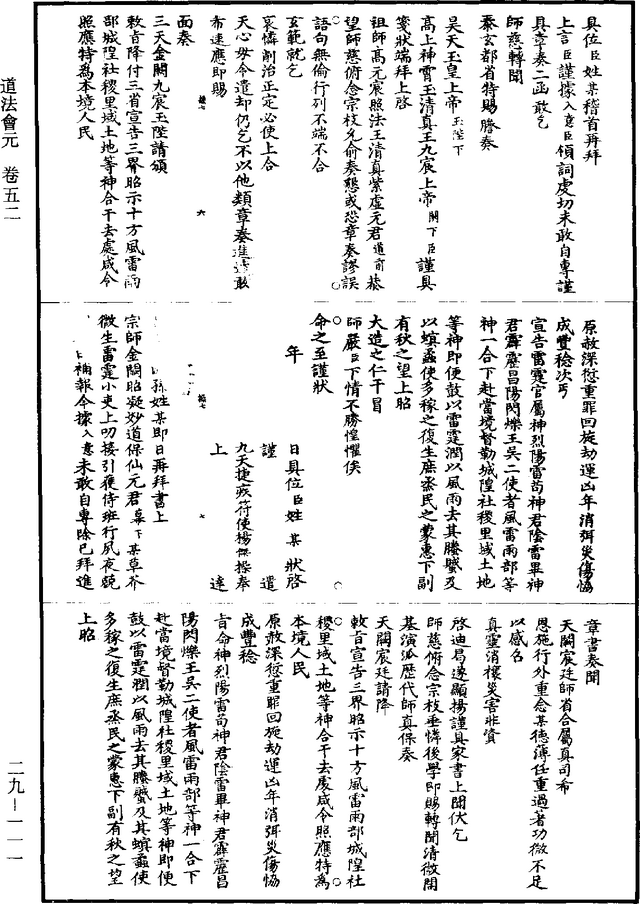 道法會元　卷五二
二九—一一一
具位臣姓某稽首再拜
上言臣謹據入意臣領詞虔切未敢自專謹
具章奏二函敢乞
師慈轉聞
泰玄都省特賜謄奏
昊天玉皇上帝玉陛下
高上神霄玉清真王九宸上帝闕下臣謹具
箋狀端拜上啓
祖師高元宸照法王清真紫虛元君
望師慈俯念宗枝允俞奏懇或恐章奏謬誤
語句無倫行列不端不合
玄範就乞
哀憐削治正定必使上合
天心毋令遣却仍乞不以他類章奏進達敢
希速應即賜
六
面奏
三天金闕九宸玉陛請頒
敕旨降付三省宣告三界昭示十方風雷雨
部城隍社稷里域土地等神合干去處咸令
照應特爲本境人民
原赦深愆重罪回旋劫運凶年消弭災傷恊
成豐稔次丐
宣告雷霆官屬神烈陽雷苟神君陰雷畢神
君霹靂昌陽閃爍王吳二使者風雷雨部等
神一合下赴當境督勒城隍社稷里域土地
等神即便鼓以雷霆潤以風雨去其螣蟘及
以蟥蟊使多稼之復生庶烝民之蒙惠下副
有秋之望上昭
大造之仁干冒
師嚴臣下情不勝惶懼俟
命之至謹狀
年　日具位臣姓　某　狀啓
謹　遣
九天捷疾符使楊傑捧奉
上　達
七
孫姓某即日再拜書上
宗師金闕昭凝妙道保仙元君幕下某草芥
微生雷霆小吏上叨接引獲侍班行夙夜兢
補報今據入意未敢自專除已拜進
章書奏聞
天闕宸廷師省合屬真司希
恩施行外重念某德薄任重過著功微不足
以感召
真靈消禳災害非資
啓迪曷遂顯揚謹具家書上聞伏乞
師慈俯念宗枝垂憐後學即賜轉聞清微開
基演派歷代師真保奏
天闕宸廷請降
敕旨宣告三界昭示十方風雷雨部城隍社
稷里域土地等神合干去處咸令照應特爲
本境人民
原赦深愆重罪回旋劫運凶年消弭災傷恊
成豐稔
旨命神烈陽雷苟神君陰雷畢神君霹靂昌
陽閃爍王吳二使者風雷雨部等神一合下
赴當境督勒城隍社稷里域土地等神即便
鼓以雷霆潤以風雨去其螣蟘及其蟥蟊使
多稼之復生庶烝民之蒙惠下副有秋之望
上昭